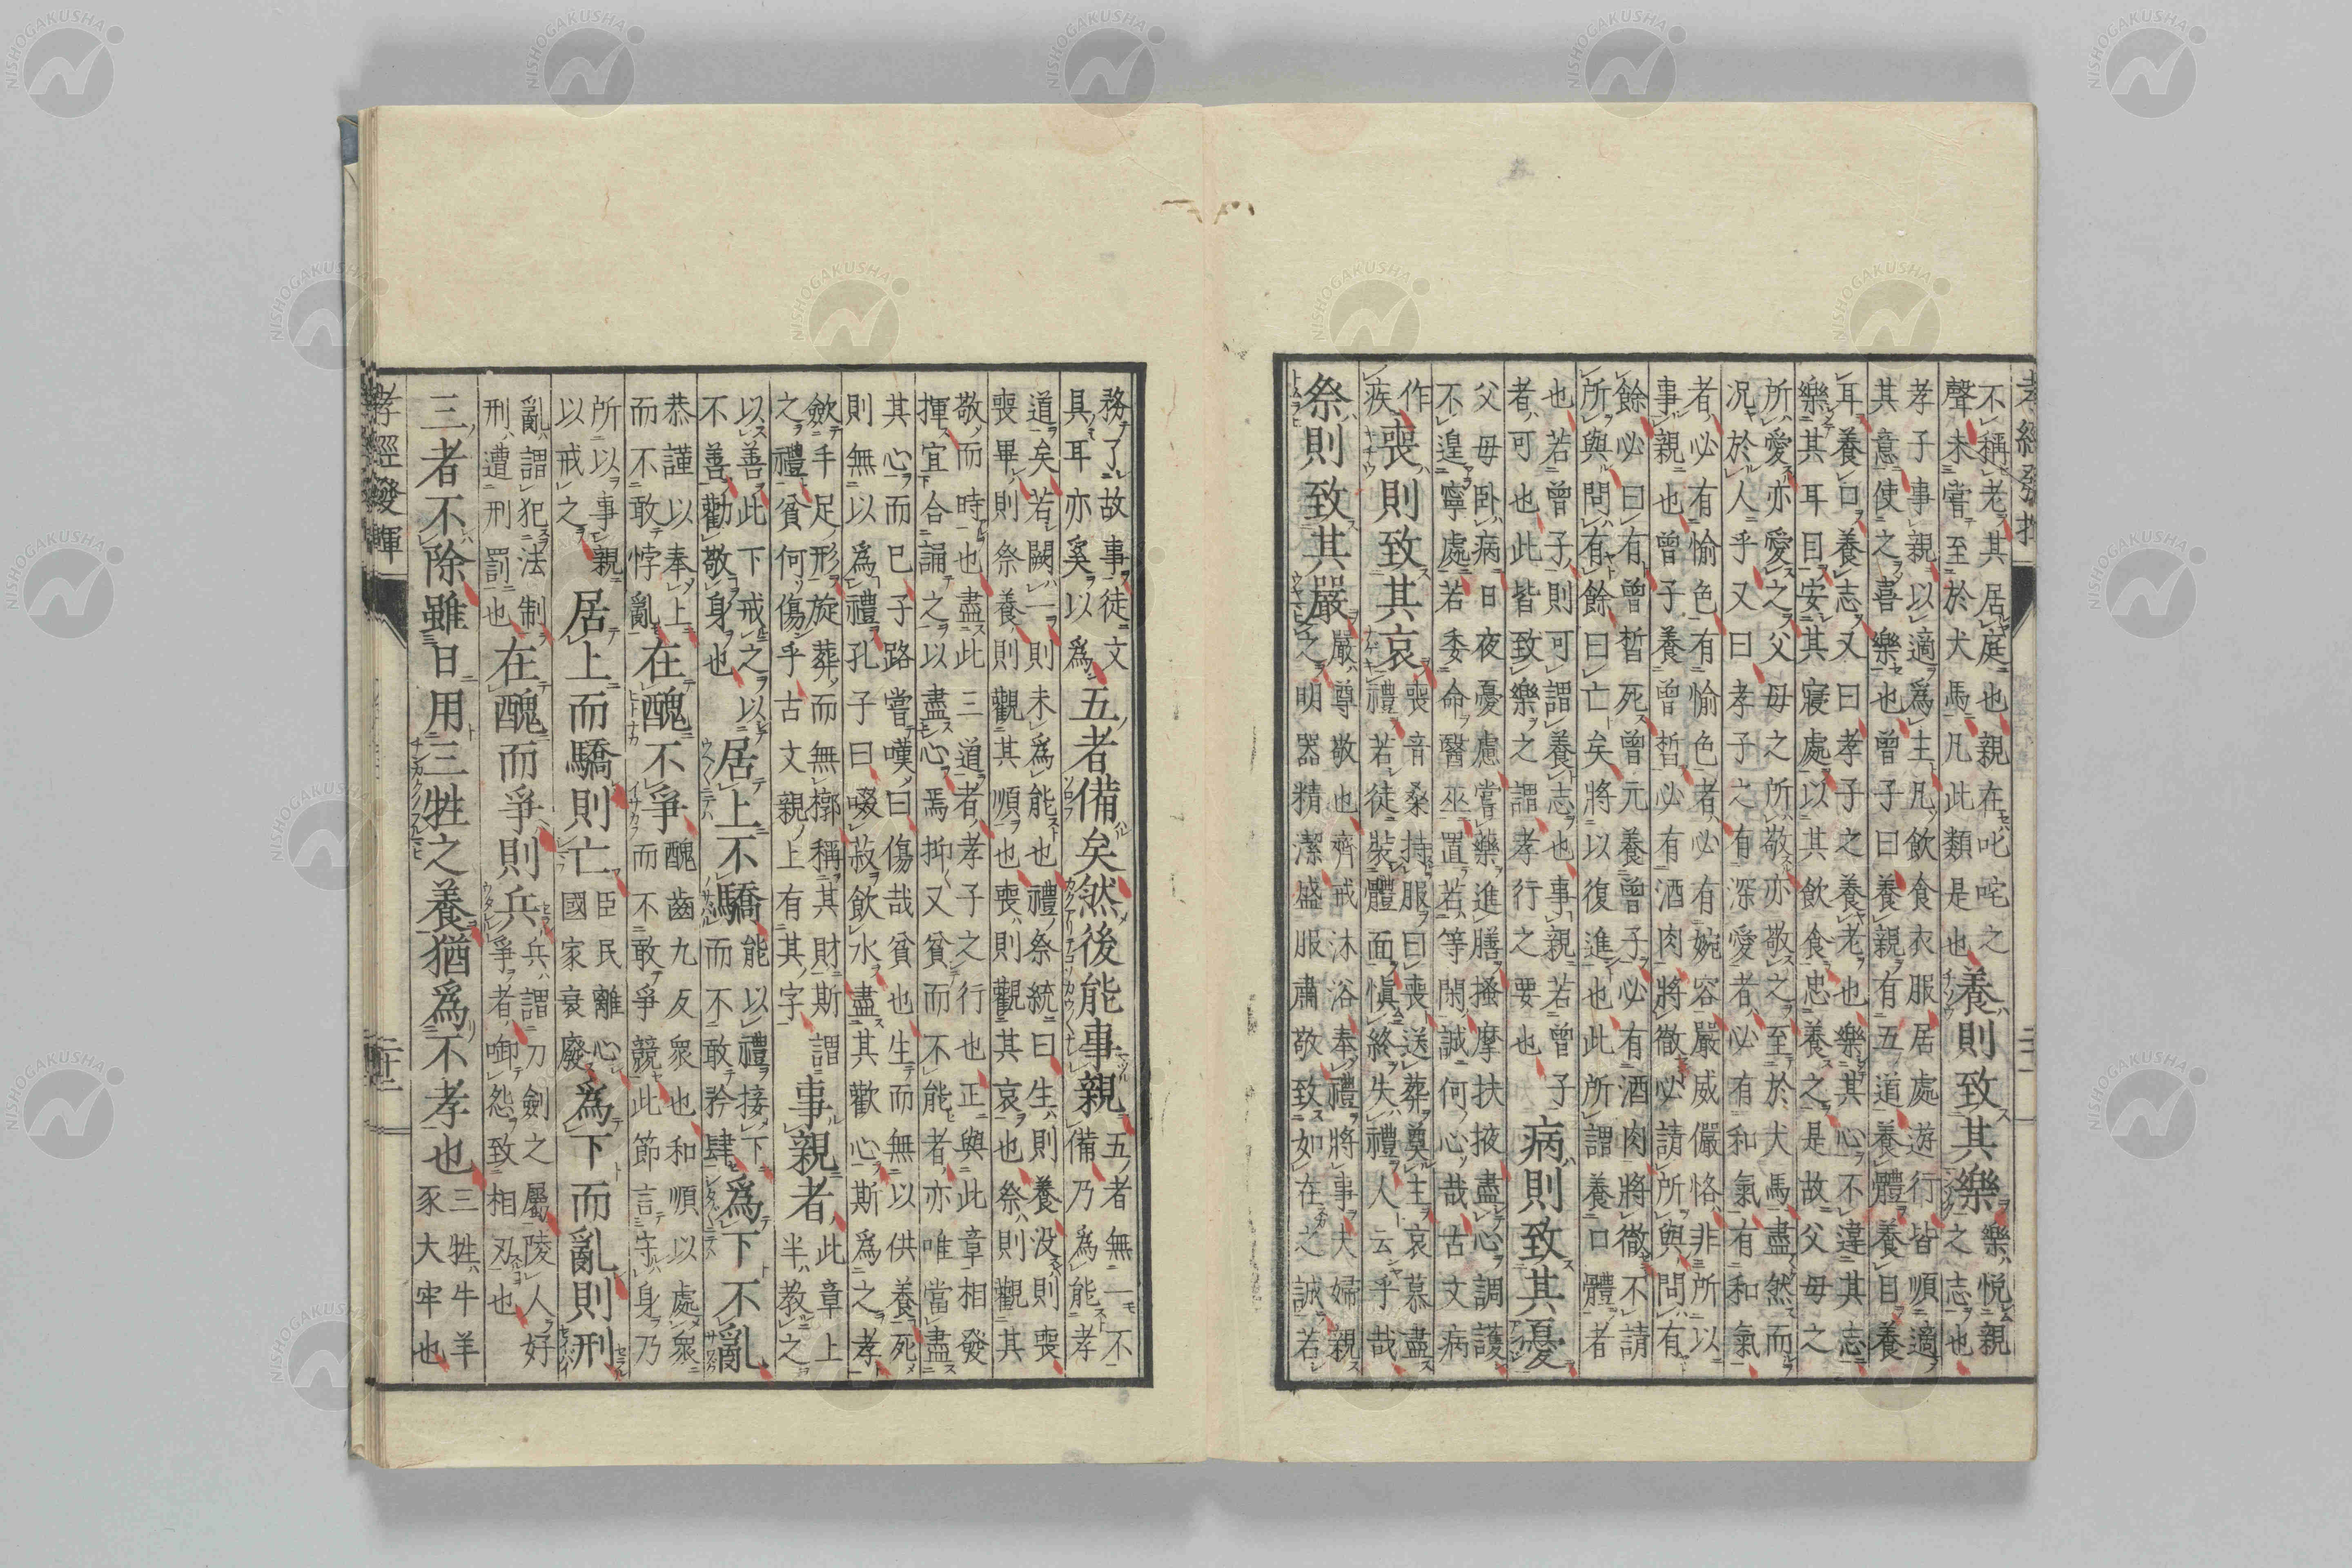 孝經發揮
不稱老其居庭也親在叱咤之
聲未嘗至於犬馬凡此類是也
養則致其樂
樂ハ悦親
之志也
孝子事親以適爲主凡飲食衣服居處遊行皆順適
其意使之喜樂也曾子曰養親有五道養體養目養
耳養口養志又曰孝子之養老也樂其心不違其志
樂其耳目安其寢處以其飲食忠養之是故父母之
所愛亦愛之父母之所敬亦敬之至於犬馬盡然而
况於人乎又曰孝子之有深愛者必有和氣有和氣
者必有愉色有愉色者必有婉容嚴威儼恪非所以
事親也曾子養曾晳必有酒肉將徹必請所與問有
餘必曰有曾晳死曾元養曾子必有酒肉將徹不請
所與問有餘曰亡矣將以復進也此所謂養口體者
也若曾子則可謂養志也事親若曾子
者可也此皆致樂之謂孝行之要也
病則致其憂
父母卧病日夜憂慮嘗藥進膳搔摩扶掖盡心調護
不遑寧處若委命醫巫置若等閑誠何心哉古文病
作
疾
喪則致其哀
喪音桑持服曰喪送葬奠主哀慕盡
禮若徒裝體面愼終失禮人云乎哉
祭則致其嚴
嚴尊敬也齊戒沐浴奉禮將事夫婦親
之明器精潔盛服肅敬致如在之誠若
務了故事徒文
具耳亦奚以爲
五者備矣然後能事親
五者無一不
備乃爲能孝
道矣若闕一則未爲能也禮祭統曰生則養没則喪
喪畢則祭養則觀其順也喪則觀其哀也祭則觀其
敬而時也盡此三道者孝子之行也正與此章相發
揮宜合誦之以盡心焉抑又貧而不能者亦唯當盡
其心而已子路嘗嘆曰傷哉貧也生而無以供養死
則無以爲禮孔子曰啜菽飲水盡其歡心斯爲之孝
歛手足形旋葬而無槨稱其財斯謂
之禮貧何傷乎古文親上有其字
事親者
此章上
半教之
以善此下戒之以
不善勸敬身也
居上不驕
能以禮接下
而不敢矜肆
爲下不亂
恭謹以奉上
而不敢悖亂
在醜不爭
醜齒九反衆也和順以處衆
而不敢爭競此節言守身乃
所以事親
以戒之
居上而驕則亡
臣民離心
國家衰廢
爲下而亂則刑
亂謂犯法制
刑遭刑罰也
在醜而爭則兵
兵謂刀劍之屬陵人好
爭者啣怨致相刃也
三者不除雖日用三牲之養猶爲不孝也
三牲牛羊
豕大牢也
孝經發揮
二十二